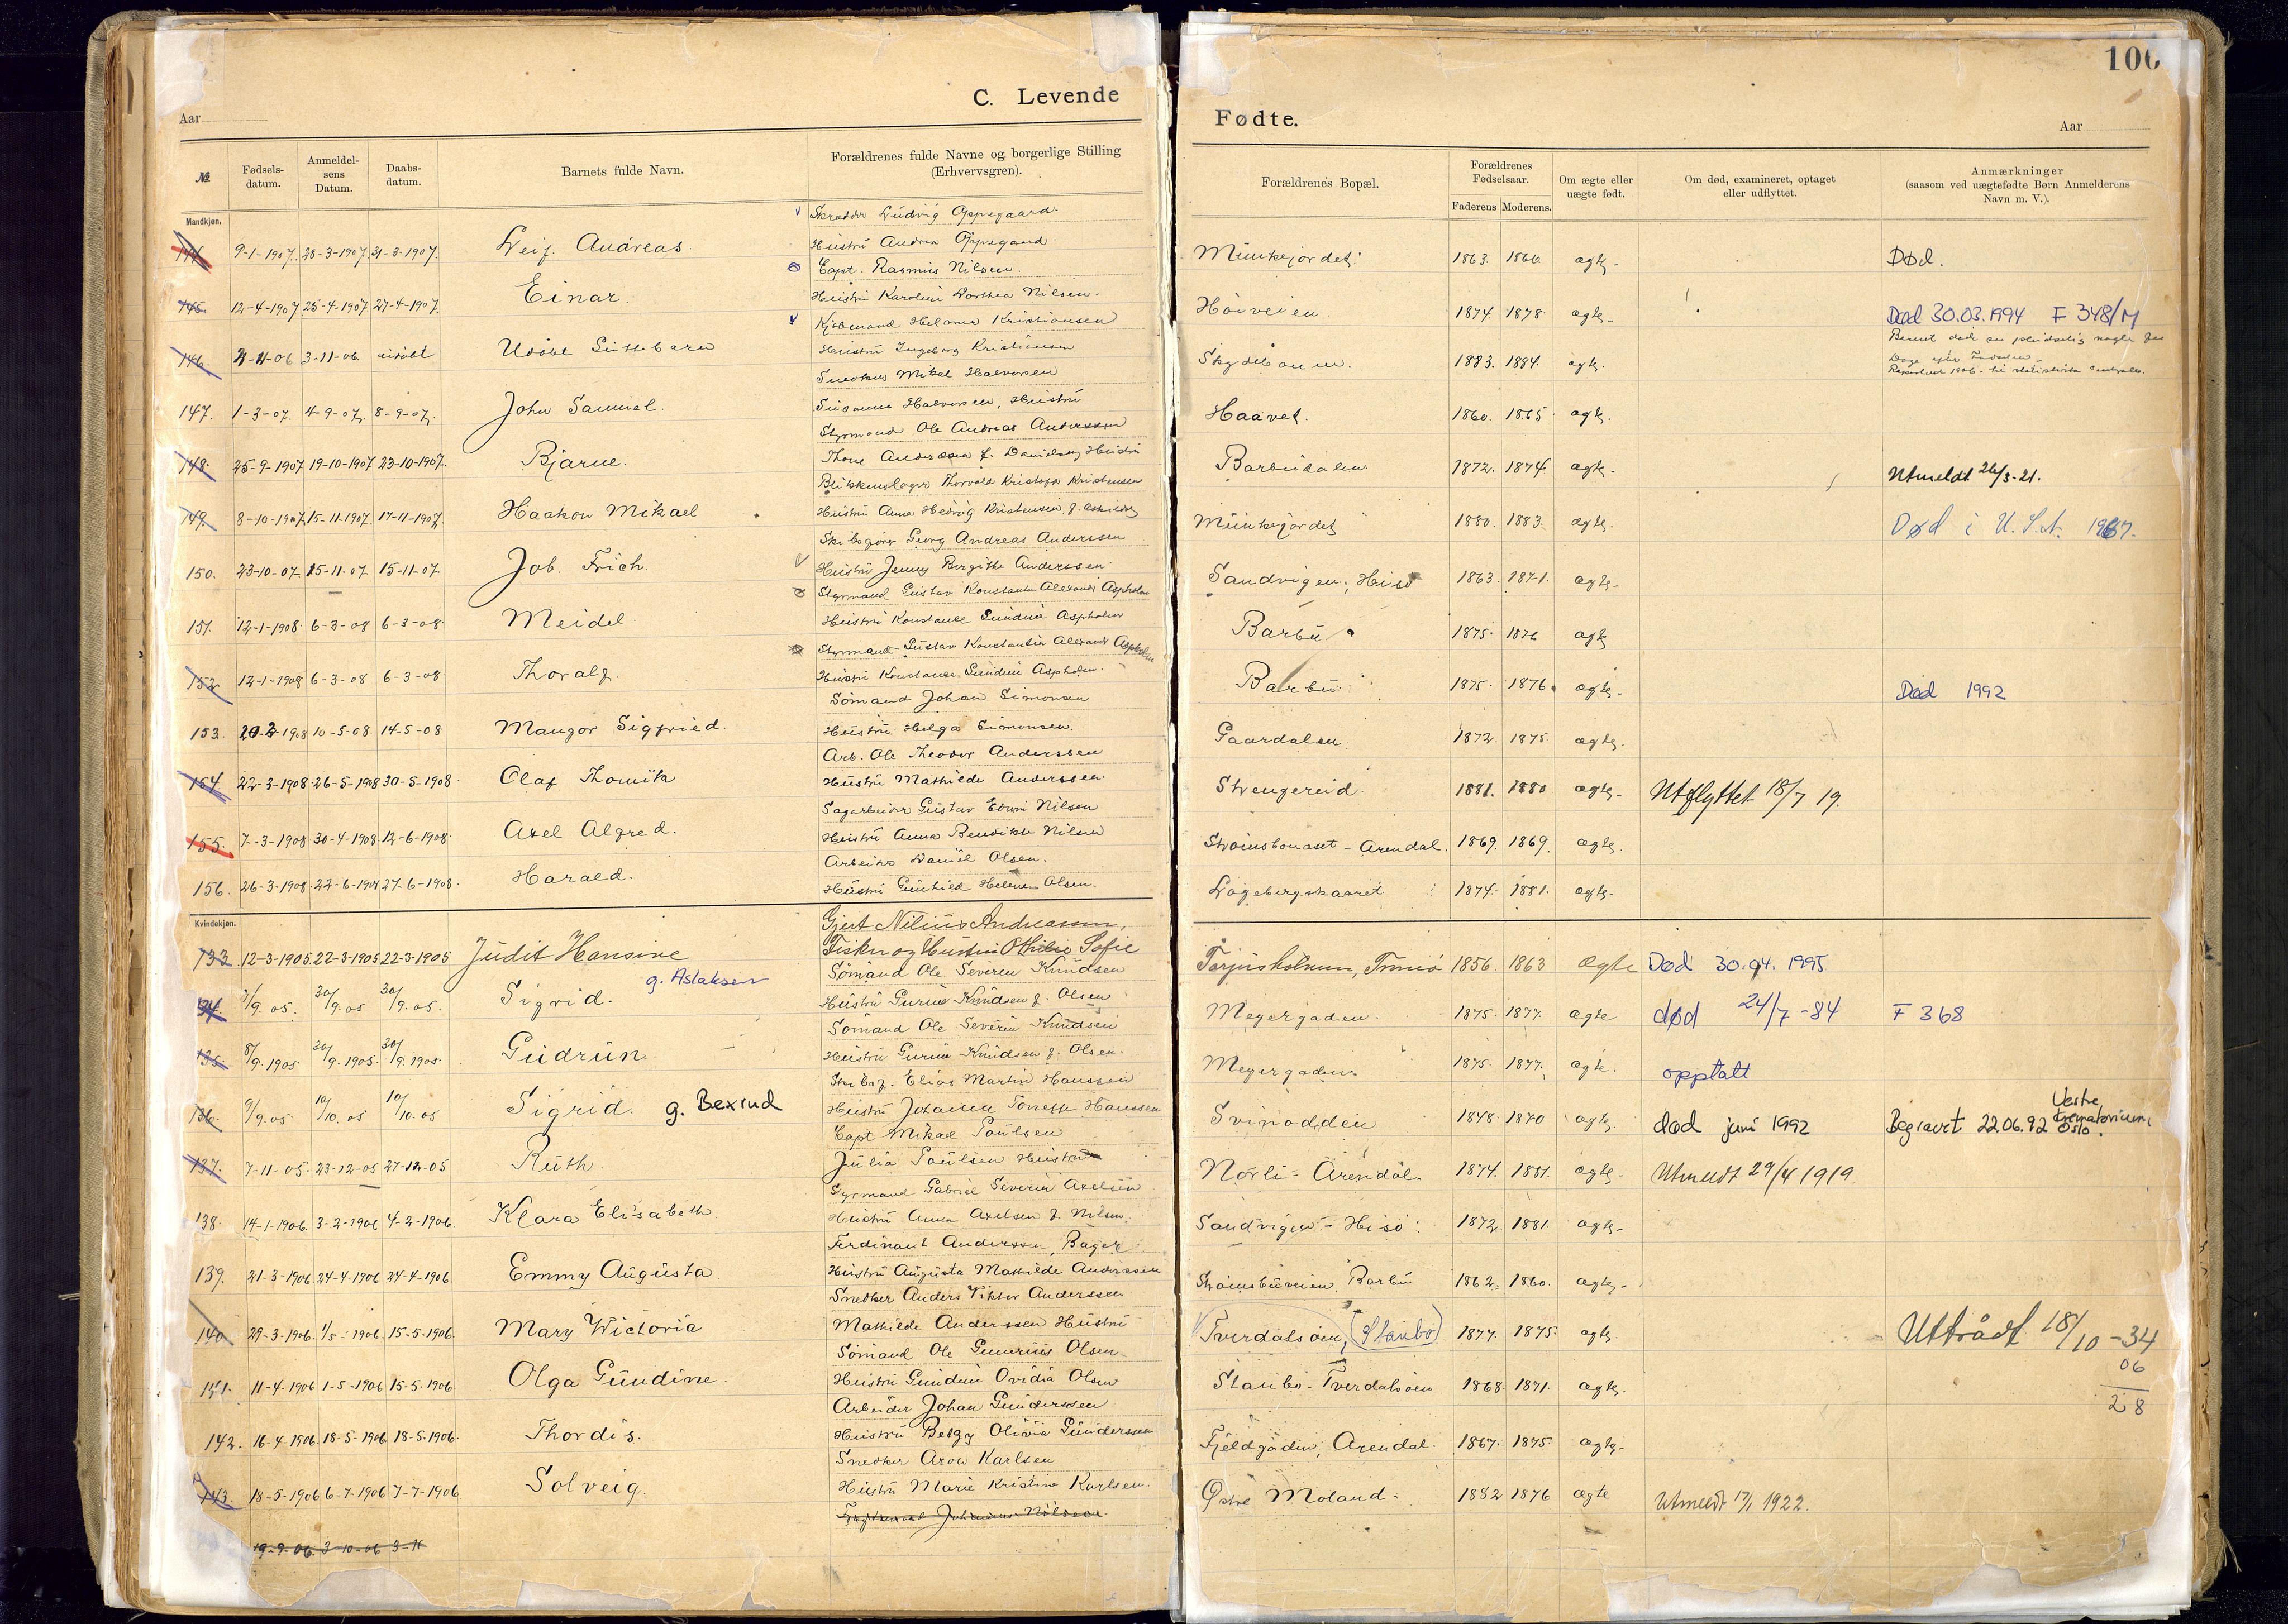 100
C. Levende
Fødte.
Aar
Aar
№
Fødsels-
datum.
Anmeldel-
sens
Datum.
Daabs-
datum.
Barnets fulde Navn.
Forældrenes fulde Navne og borgerlige Stilling
(Erhvervsgren).
Forældrenes Bopæl.
Forældrenes
Fødselsaar.
Faderens Moderens.
Om ægte eller
uægte født.
Om død, examineret, optaget
eller udflyttet.
Anmærkninger
(saasom ved uægtefødte Børn Anmelderens
Navn m. V.).
Mandkjøn.
Skrædder Ludvig Oppegaard.
144 9-1-1907. 28-3-1907. 31-3-1907. Leif Andreas. Hustru Andrea Oppegaard. Munkejordet. 1863. 1866. ægte. Død.
Capt. Rasmus Nilsen.
145. 12-4-1907 25-4-1907 27-4-1907. Einar. Hustru Karoline Dorthea Nilsen. Høiveien. 1874. 1878. ægte. Død 30.03.1994 F 348/M
Kristiansen
146. 3-11-06. udøbt Udøbt Guttebarn Hustru Ingeborg Kristiansen 1883. 1884. ægte.
Snedker Mikal Halvorsen
147. 1-3-07. 4-9-07. 8-9-07. John Samuel. Susanna Halvorsen, Hustru Haavet. 1860. 1865. ægte.
Styrmand Ole Andreas Anderssen
148. 25-9-1907 19-10-1907 23-10-1907. Bjarne. Thone Anderssen f. Danielsen, Hustru Barbudalen 1872. 1874. ægte. Utmeldt 26/3-21.
Blikkenslager Thorvald Kristensen
149. 8-10-1907. 15-11-1907. 17-11-1907. Haakon Mikael Hustru Anna Hedvig Kristensen Munkejordet 1880. 1883. ægte. Død i U.S.A. 1967.
Georg Andreas Anderssen
150. 23-10-07. 15-11-07 15-11-07 Job. Frich. Hustru Jenny Birgitte Anderssen Sandvigen, Hisø 1863. 1871. ægte.
Styrmand Gustav Konstantin Alexand. Aspholm
151. 12-1-1908 6-3-08 6-3-08 Meidel. Hustru Konstance Gundine Aspholm Barbu 1875. 1876 ægte
Styrmand Gustav Konstantin Alexand Aspholm
152 12-1-1908 6-3-08 6-3-08 Thoralf. Hustru Konstance Gundine Aspholm. Barbu 1875. 1876. ægte. Død 1992
Sømand Johan Simonsen
153. 1908 10-5-08 14-5-08 Mangor Sigfried. Hustru Helga Simonsen. Gaardalen 1872. 1875. ægte.
Arb. Ole Theodor Anderssen
154 22-3-1908. 26-5-1908 30-5-1908. Olaf Thomik Hustru Mathilde Anderssen. Strengereid. 1881. 1880 ægte. Utflyttet 18/7 19.
Sagarbeider Gustav Edvin Nilsen
155. 7-3-1908. 30-4-1908. 12-6-1908. Axel Alfred. Hustru Anna Bendikte Nilsen Arendal. 1869. 1869. ægte.
Arbeider Daniel Olsen.
156. 26-3-1908. 22-6-1908 27-6-1908. Harald. Hustru Gunhild Helene Olsen. 1874. 1881. ægte.
Kvindekjøn.
Gjert Nilius Andreassen,
133 12-3-1905. 22-3-1905 22-3-1905 Judit Hansine Fisker og Hustru Othilie Sofie Torjusholmen, Tromø 1856. 1863 ægte Død 30.04.1995
g. Aslaksen Sømand Ole Severin Knudsen
134. 9. 05. 30/9. 05 30/9. 05. Sigrid. Hustru Gurine Knudsen f. Olsen Meyergaden. 1875. 1877. ægte død 24/7-84 F 368
Sømand Ole Severin Knudsen
135. 8/9 1905 30/9. 1905. 30/9. 1905 Gudrun. Hustru Gurine Knudsen f. Olsen. Meyergaden 1875. 1877. ægte. opptatt
Elias Martin Hanssen
136. 9/9. 05. 10/10. 05 10/10. 05 Sigrid. g. Bexrud Hustru Hanssen Svinodden 1848. 1870 ægte død juni 1992 Begravet 22.06.92 Vestre Krematorium, Oslo.
Capt Mikael Poulsen
137. 7-11-05. 23-12-05 27-12-05 Ruth. Julia Poulsen Hustru Nørli - Arendal. 1874. 1881. ægte. Utmeldt 29/4 1919.
Styrmand Gabriel Severin Axelsen
138. 14-1-1906. 3-2-1906 4-2-1906. Klara Elisabeth Hustru Anna Axelsen f. Nilsen. Sandvigen - Hisø. 1872. 1881. ægte.
Ferdinant Anderssen, Bager
139. 21-3-1906 24-4-1906 24-4-1906. Emmy Augusta Hustru Augusta Mathilde Anderssen Strømsbuveien Barbu 1862. 1860. ægte.
Snedker Anders Viktor Anderssen
140. 29-3-1906. 1/5-1906. 15-5-1906. Mary Wictoria Mathilde Anderssen Hustru Tverdalsøen, (Staubø) 1877. 1875. ægte. Uttrådt 18/10-34
06
28
Sømand Ole Gunerius Olsen
141. 11-4-1906 1-5-1906 15-5-1906. Olga Gundine. Hustru Gundine Ovidia Olsen Staubø - Tverdalsøen 1868. 1871. ægte.
Arbeider Johan Gunderssen
142. 16-4-1906. 18-5-1906 18-5-1906. Thordis. Hustru Betzy Olivia Gunderssen Fjeldgaden, Arendal. 1867. 1875. ægte.
Snedker Aron Karlsen
143. 18-5-1906 6-7-1906 7-7-1906 Solveig. Hustru Marie Kristine Karlsen. Østre Moland. 1882 1876 ægte Utmeldt 17/1 1922.
19-9-06. 3-10-06 3-11